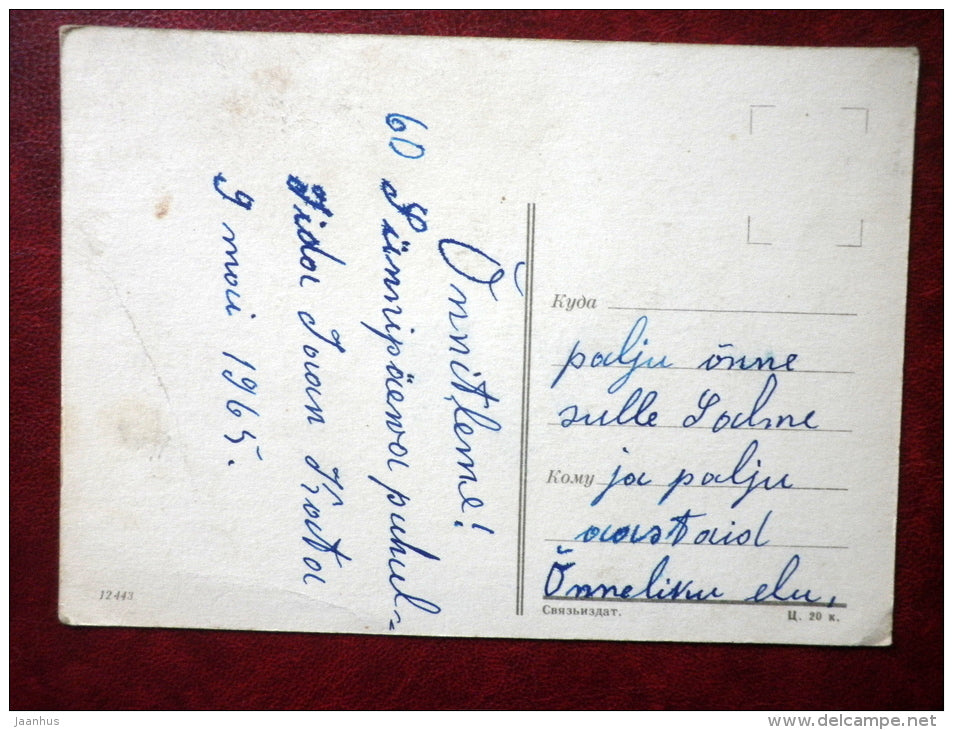 Õnnitleme!
60 Sünnipäeva puhul
Iida Juan Kata
9 mai 1965.
Куда
palju õnne
sulle Salme
Кому ja palju
aastaid
Õnneliku elu,
12443
Связьиздат.
Ц. 20 к.
jaanhus
http://www.delcampe.net